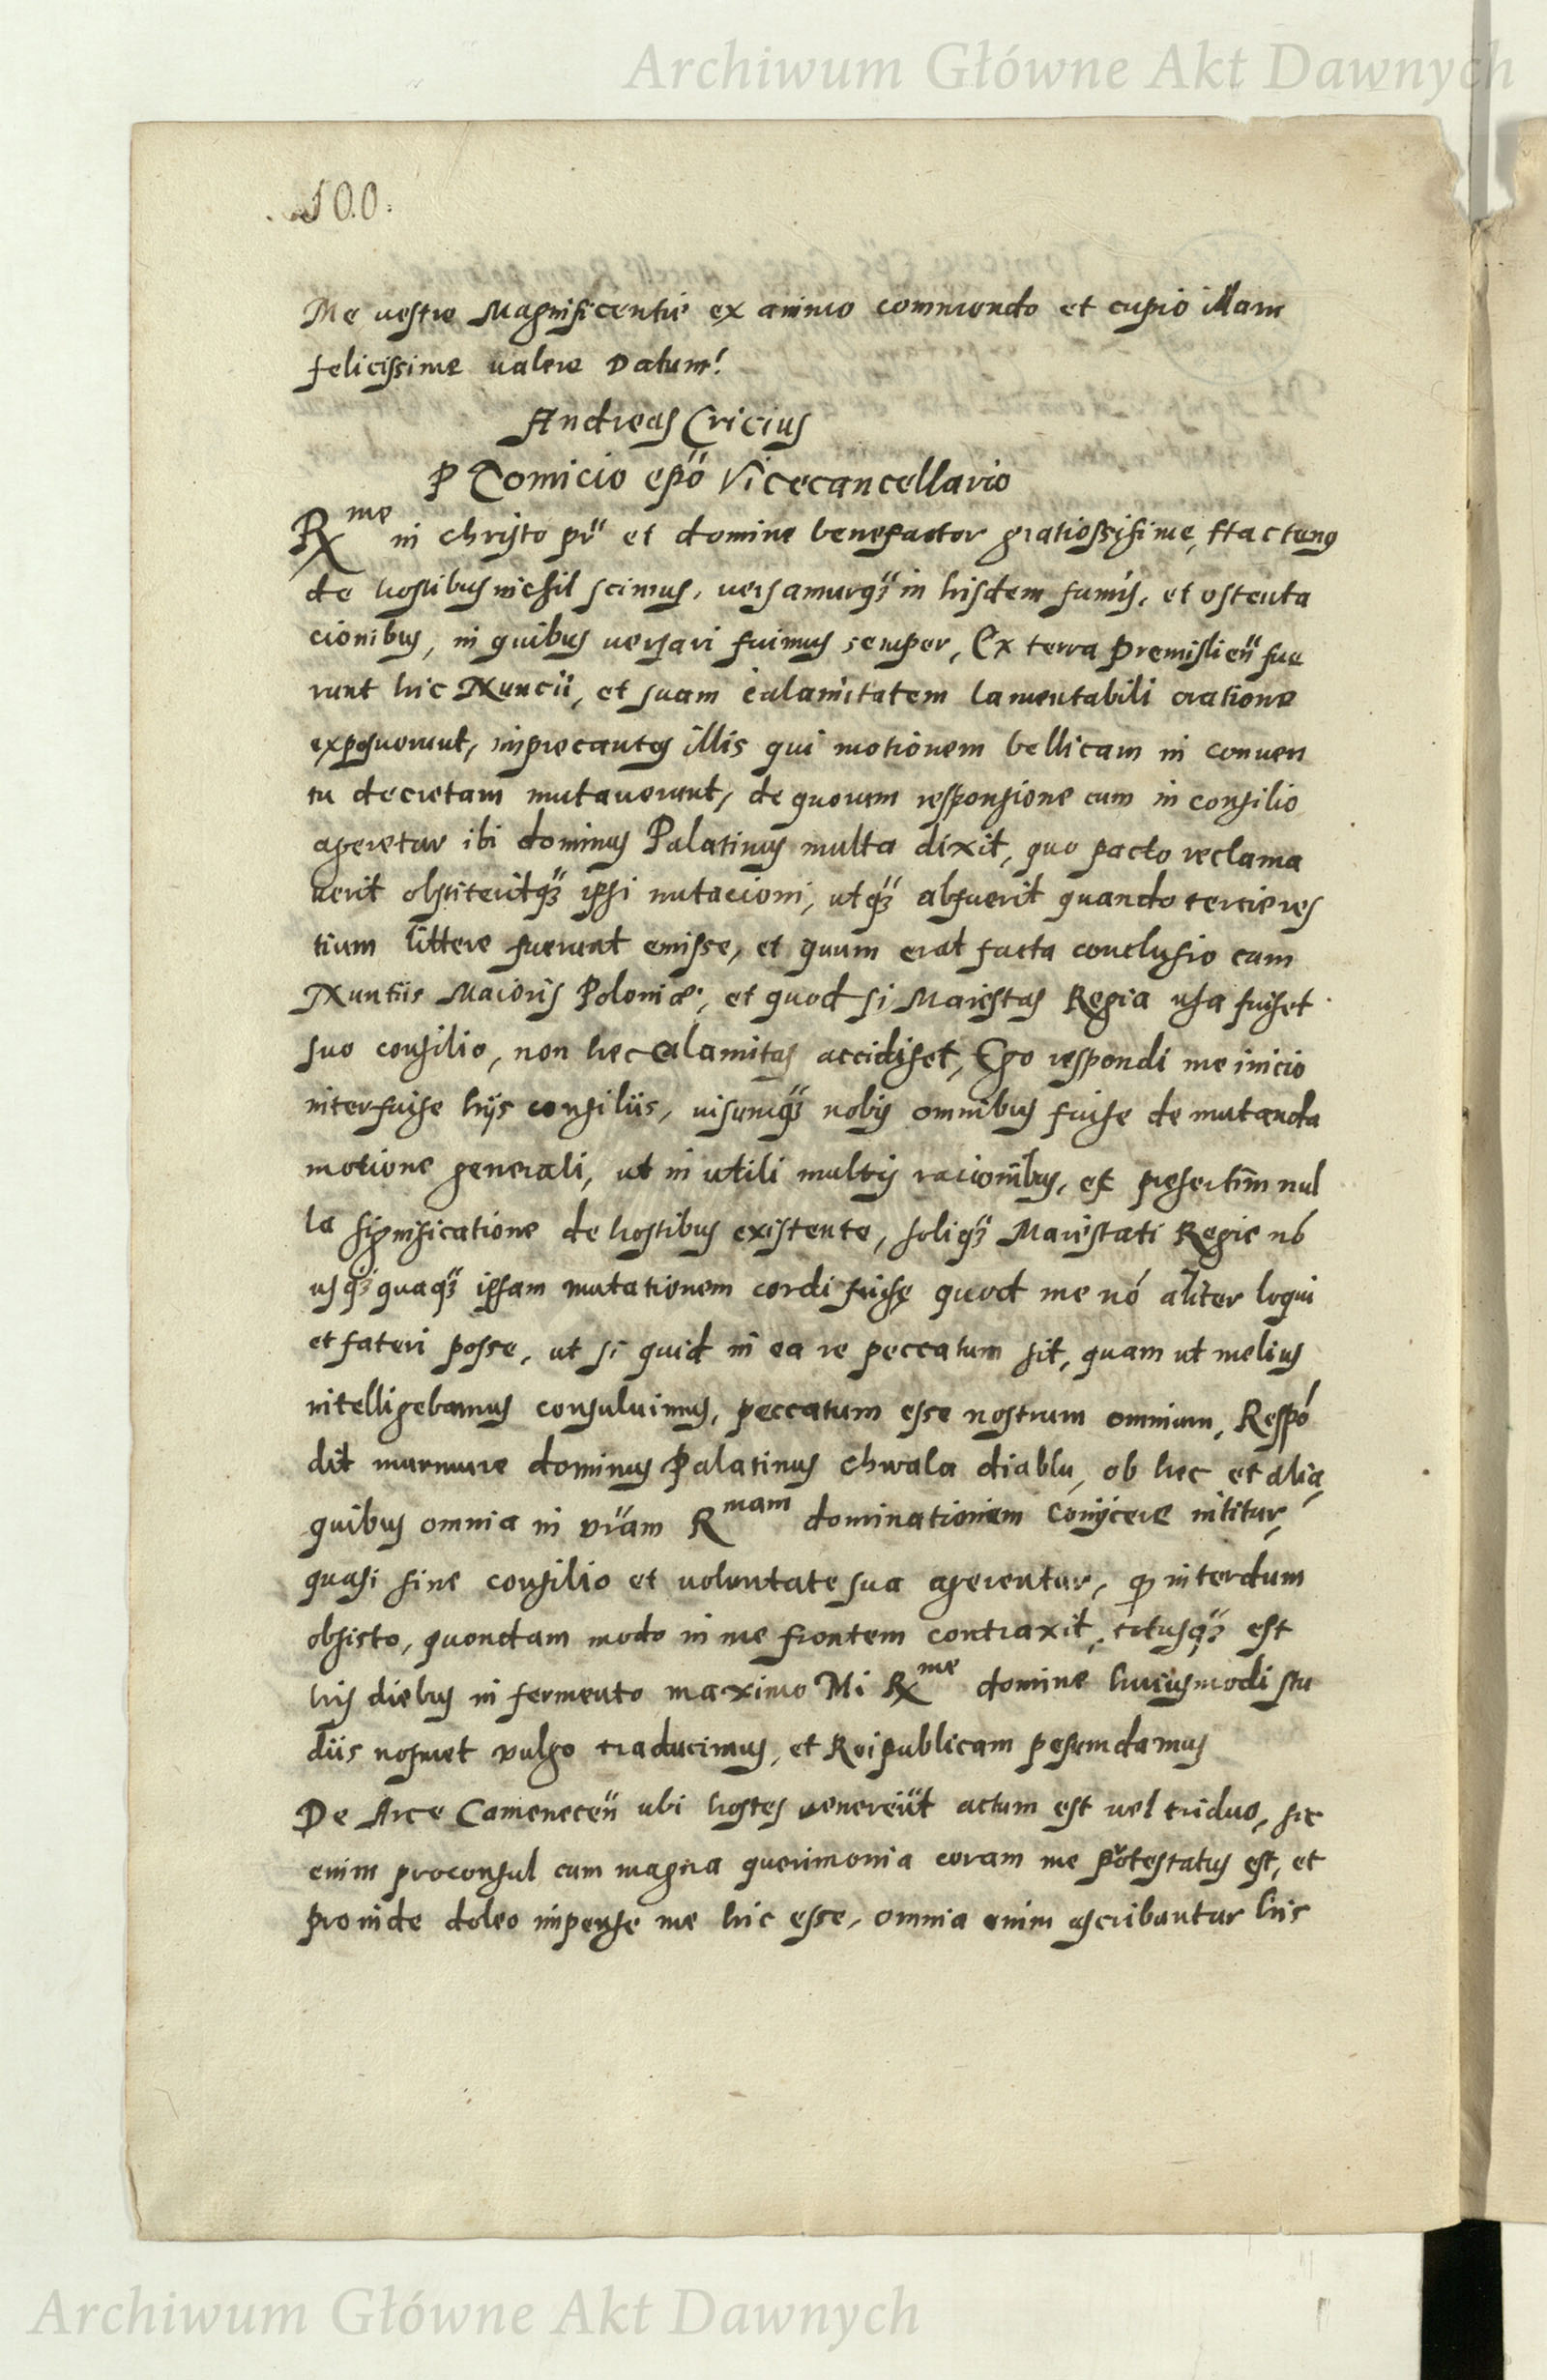 Archiwum Główne Akt Dawnych
.100.
Me vestre Magnificentie ex animo commendo et cupio illam
felicissime valere Datum!
Andreas Cricius
P Tomicio epō Vicecancellario
Rme in christo pr̃ et domine benefactor gratiosissime, Hactenus
de hostibus nichil scimus, versamurq̃ in hisdem fumis, et ostenta
cionibus, in quibus versari fuimus semper, Ex terra Premislieñ fue
runt hic Nuncii, et suam calamitatem lamentabili oratione
exposuerunt, imprecantes illis qui motionem bellicam in conven
tu decretam mutaverunt, de quorum responsione cum in consilio
ageretur ibi dominus Palatinus multa dixit, quo pacto reclama
verit obstiteritq̃ ipsi mutacioni, utq̃ abfuerit quando tercie res
tium littere fuerunt emisse, et quum erat facta conclusio cum
Nuntiis Maioris Poloniæ, et quod si Maiestas Regia usa fuiset
suo consilio, non hec calamitas accidiset, Ego respondi me inicio
interfuise hijs consiliis, visumq̃ nobis omnibus fuise de mutanda
motione generali, ut in utili multis racionibus, et presertim nul
la significatione de hostibus existente, soliq̃ Maiestati Regie nō
usq̃ quaq̃ ipsam mutationem cordi fuise quod me nō aliter loqui
et fateri posse, ut si quid in ea re peccatum sit, quam ut melius
intelligebamus consuluimus, peccatum esse nostrum omnium, Respō
dit murmure dominus Palatinus chwala diablu, ob hec et alia
quibus omnia in vr̃am Rmam dominationem conijcere nititur,
quasi sine consilio et voluntate sua agerentur, q interdum
obsisto, quondam modo in me frontem contraxit, totusq̃ est
his diebus in fermento maximo Mi Rme domine huiusmodi stu
diis nosmet vulgo traducimus, et Reipublicam pesumdamus
De Arce Cameneceñ ubi hostes venerint actum est vel triduo, sic
enim proconsul cum magna querimonia coram me protestatus est, et
proinde doleo impense me hic esse, omnia enim ascribuntur his
Archiwum Główne Akt Dawnych